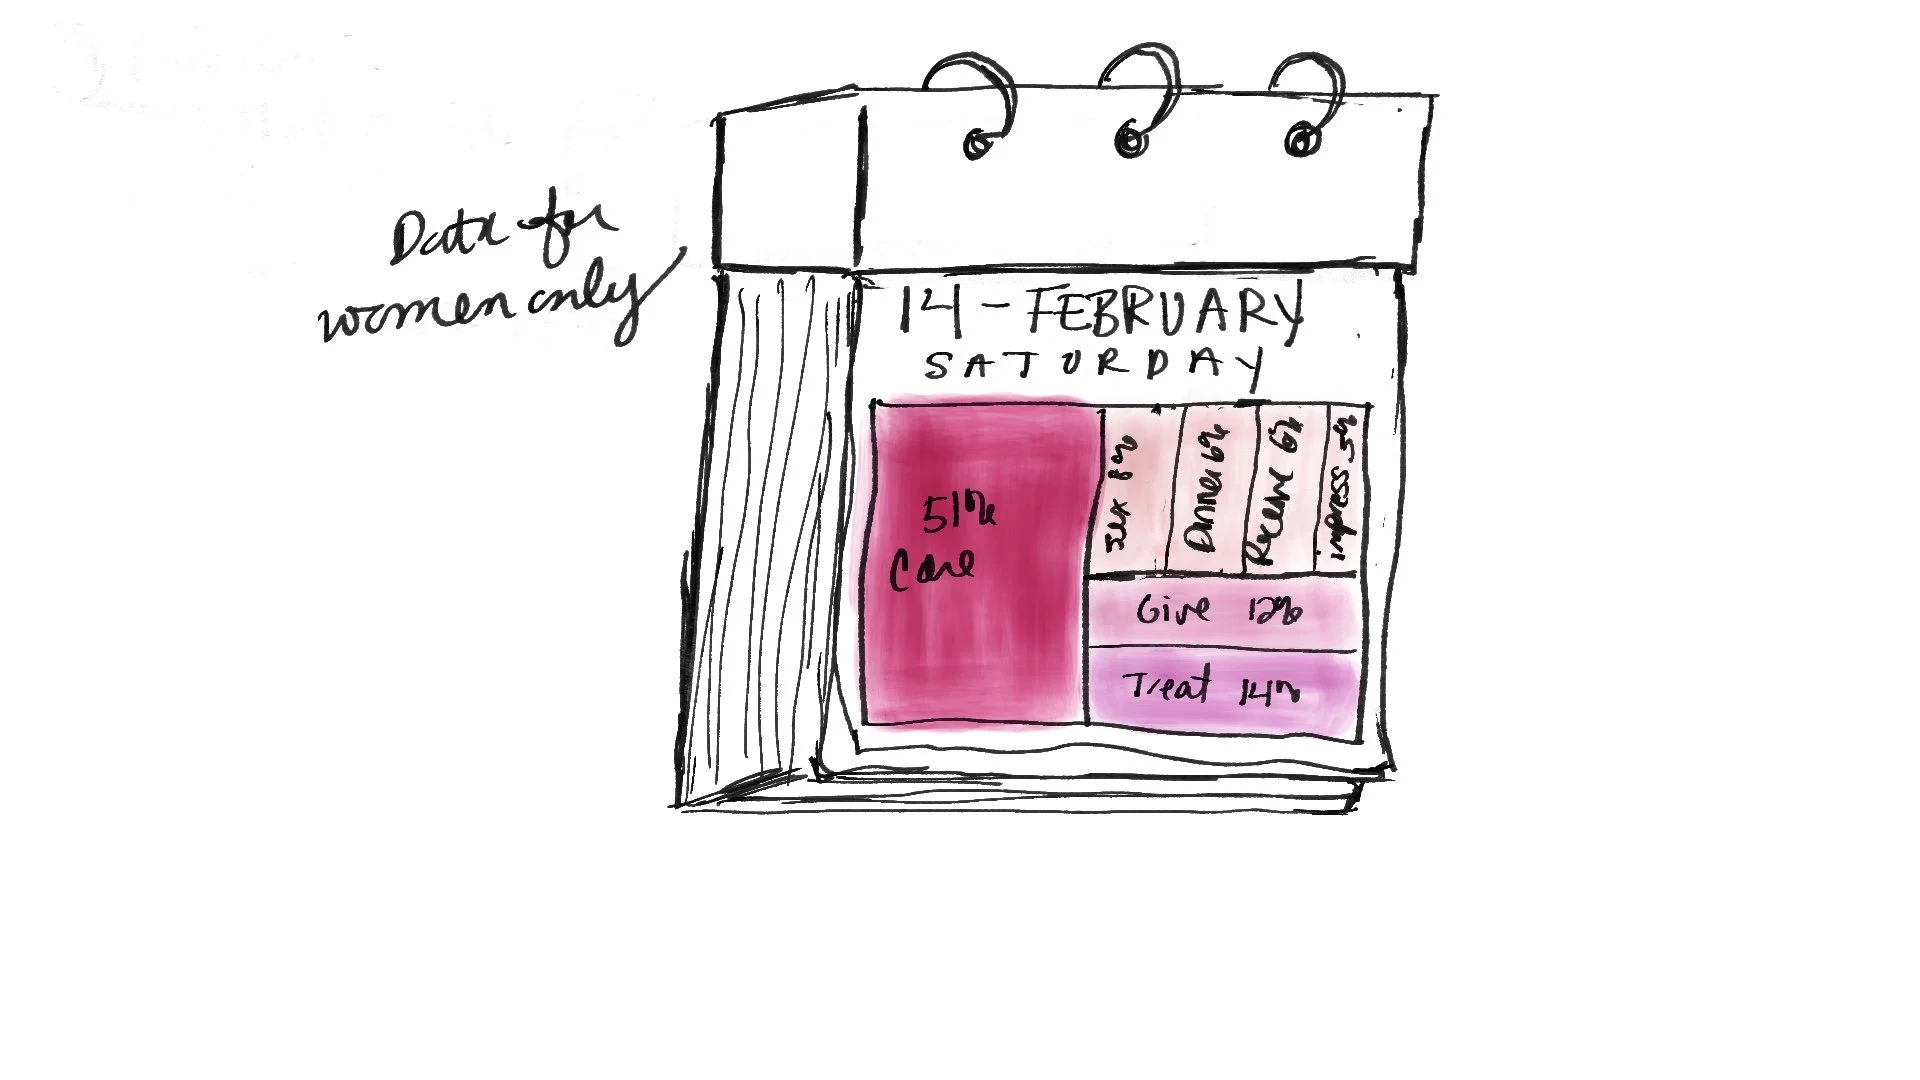 Data for
women only
14 - FEBRUARY
SATURDAY
51%
Care
Sex 8%
Dinner 6%
Receive 6%
impress 5%
Give 12%
Treat 14%